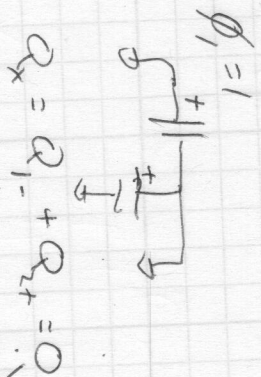 Φ₁ = 1
+
+
Qₓ = Q₁₋ + Q₂₊ = 0